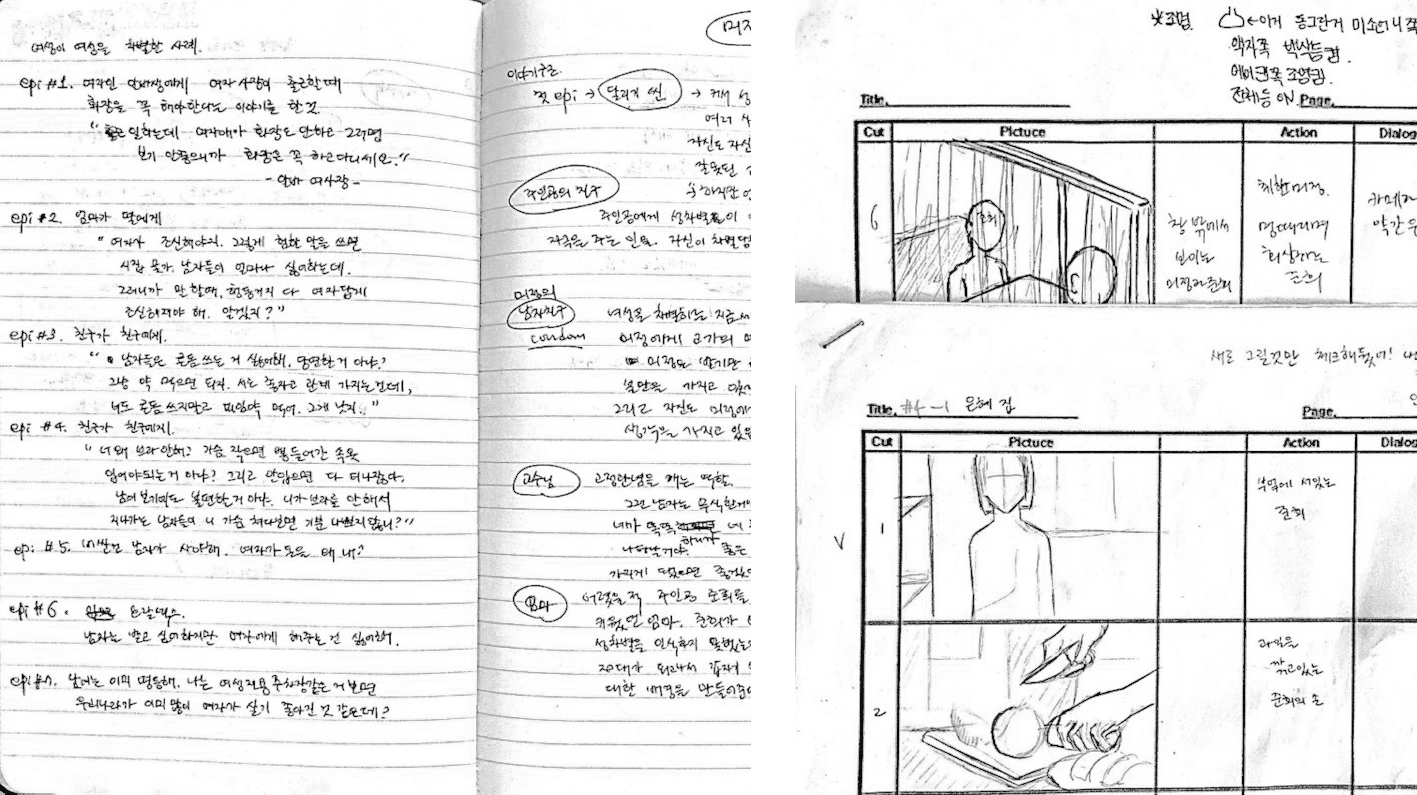 여성이 여성을 차별한 사례.
epi #1. 여자인 알바생에게 여자 사장이 출근할때
화장을 꼭 해야한다는 이야기를 한 것.
"일하는데 여자애가 화장도 안하고 그러면
보기 안좋으니까 화장은 꼭 하고다니세요."
- 알바 여사장 -
epi #2. 엄마가 딸에게
"여자가 조신해야지. 그렇게 험한 말을 쓰면
시집 못가. 남자들이 얼마나 싫어하는데.
그러니까 말 할때, 행동거지 다 여자답게
조신해져야 해. 알겠지?"
epi #3. 친구가 친구에게.
"남자들은 콘돔 쓰는 거 싫어해. 당연한거 아냐?
그냥 약 먹으면 되지. 서로 좋자고 관계 가지는건데,
너도 콘돔 쓰지말고 피임약 먹어. 그게 낫지.."
epi #4. 친구가 친구에게.
"너 왜 브라안해? 가슴 작으면 뽕 들어간 속옷
입어야되는거 아냐? 그리고 안입으면 다 티나잖아.
남이 보기에도 불편한거 아냐. 니가 브라를 안해서
지나가는 남자들이 니 가슴 쳐다보면 기분 나쁘지않니?"
epi #5. 비싼건 남자가 사야해. 여자가 돈을 왜 내?
epi #6. 오랄섹스.
남자는 받고 싶어하지만 여자에게 해주는 건 싫어해.
epi #7. 남녀는 이미 평등해. 나는 여성전용주차장같은 거 보면
우리나라가 이미 많이 여자가 살기 좋아진 것 같은데?
이야기구조.
첫 epi → 달리기 씬 →
여러
자신도 자신
잘못된
하지만
주인공의 친구
주인공에게 성차별이
자극을 주는 인물. 자신이 차별당
미정의
남자친구
condom
여성을 차별하는 지금
미정에게 고가의
미정도
불만을 가지고
그리고 자신도 미정에
생각을 가지고 있음
교수님
고정관념을 깨는 역할.
그런 남자는 무식한거
네가 똑똑
하니까
나타날거야. 좋은
가지게 됐으면 좋겠
엄마
어렸을적 주인공 준희를
키웠던 엄마. 준희가
성차별을 인식하지 못했
20대가 되고나서 갑자기
대한 배경을 만들어준
*조명
←이거 동그란거
액자쪽 박식등 켬
에어컨쪽 조명켬
전체등 ON
Title. Page.
Cut Picture Action Dialog
6
준희
창 밖에서
보이는
미정과 준희
취한 미정.
멍때리며
회상하는
준희
카메라
약간
새로 그릴것만 체크해뒀어!
Title. #4-1 은혜 집 Page.
Cut Picture Action Dialog
V
1
부엌에 서있는
준희
2
과일을
깎고있는
준희의 손